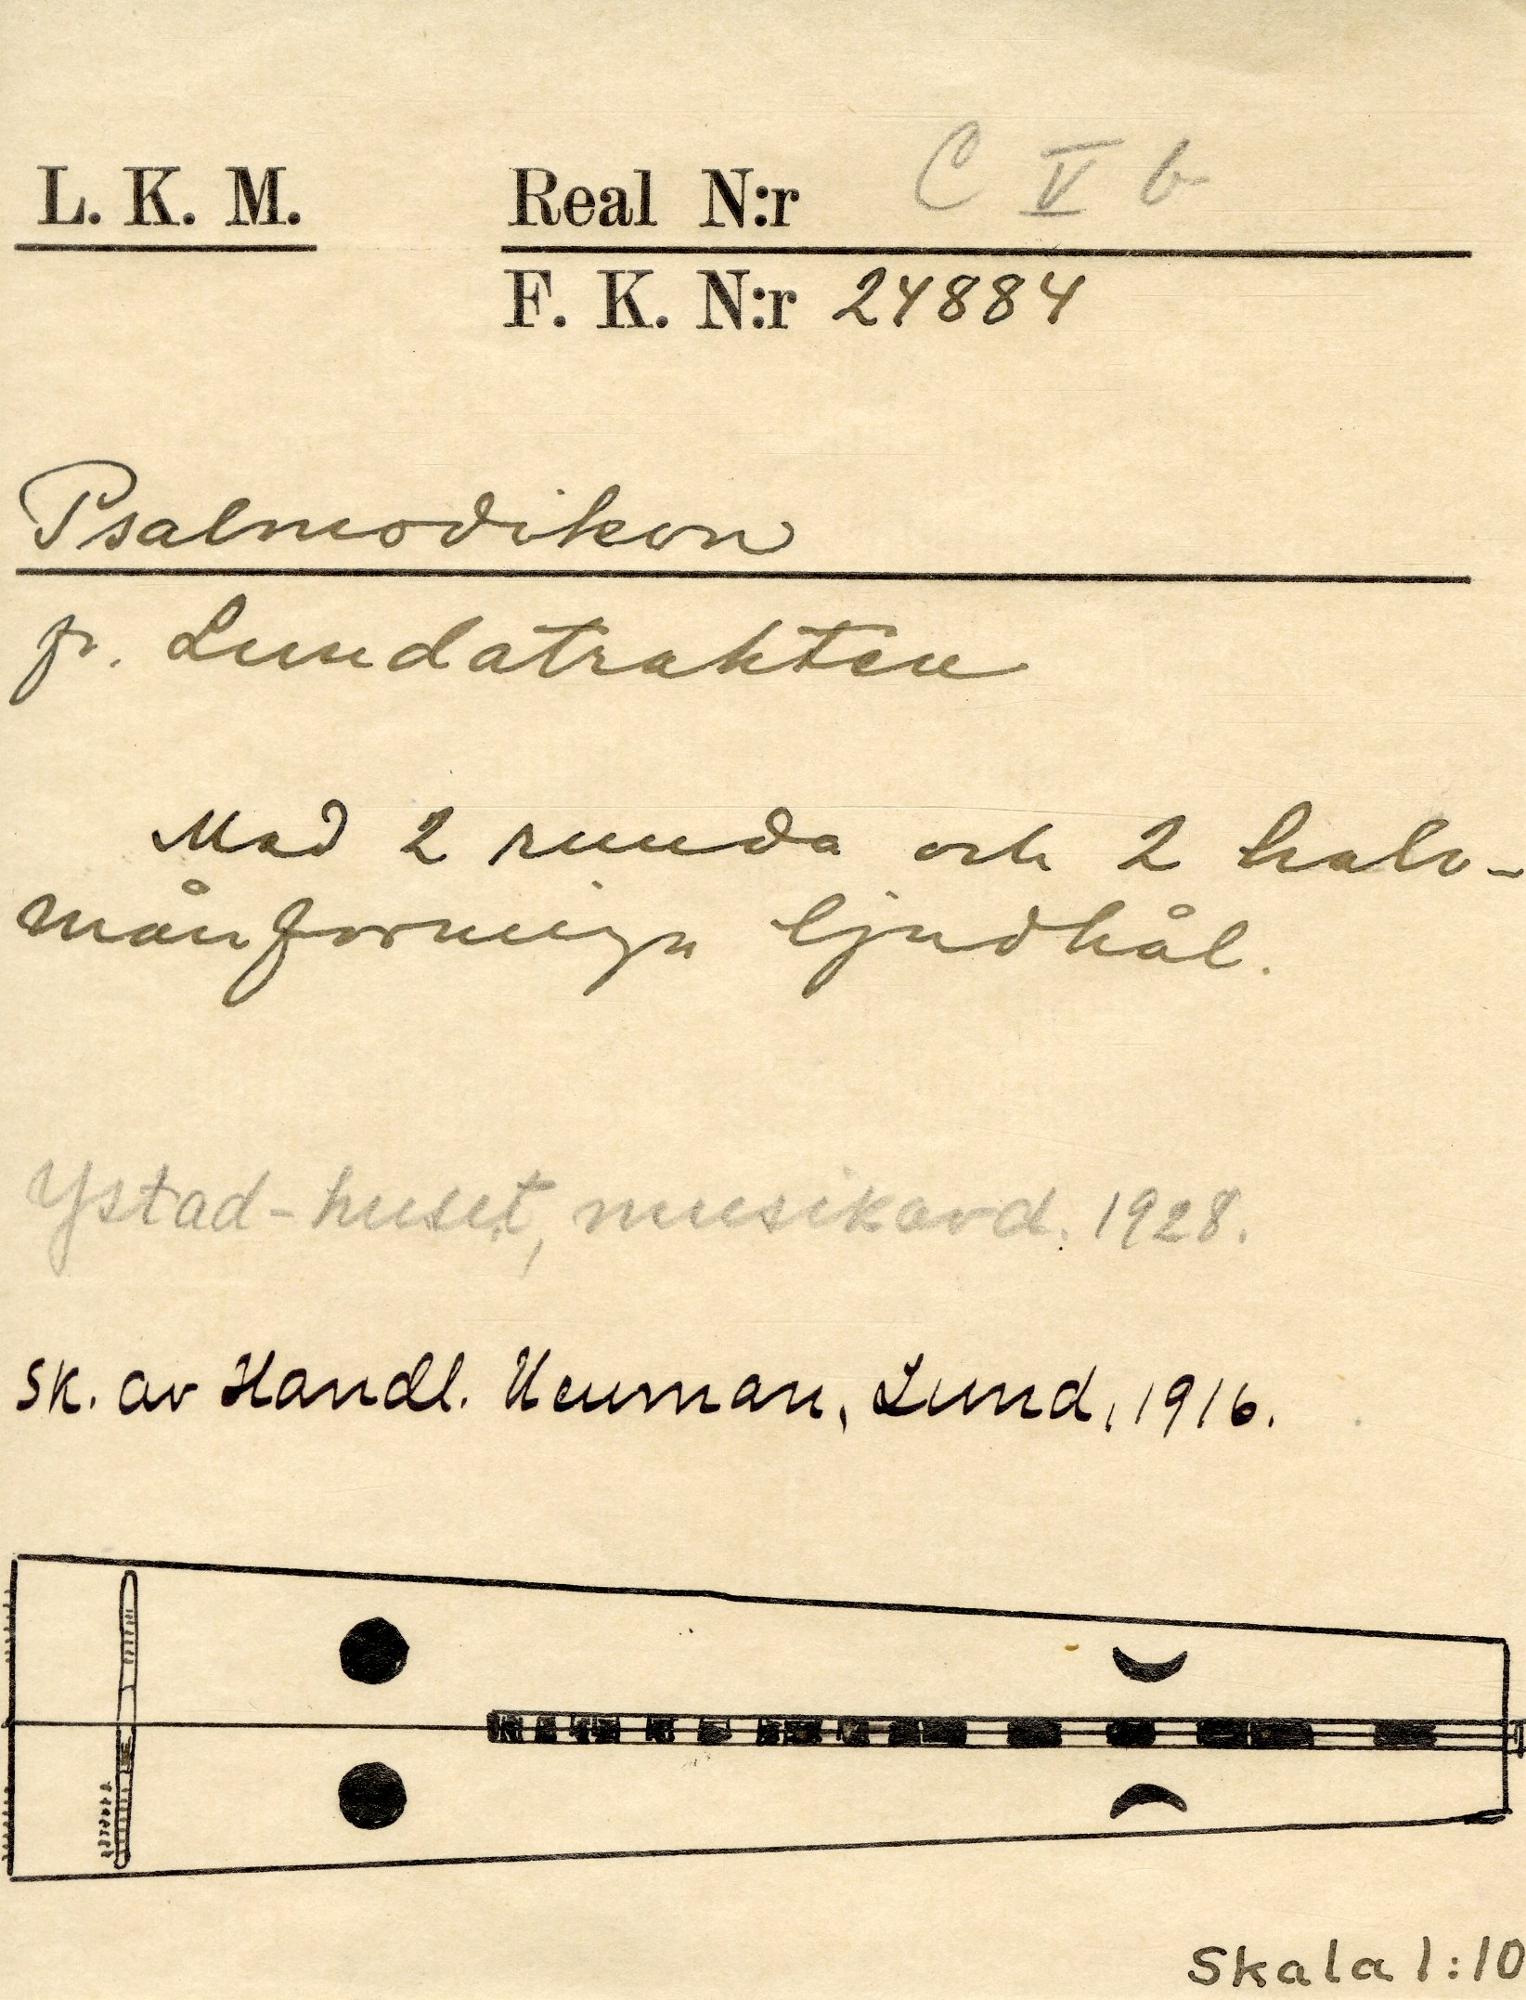 L. K. M. Real N:r C V b
F. K. N:r 24884
Psalmodikon
fr. Lundatrakten
Med 2 runda och 2 halv-
månformiga ljudhål.
Ystad-huset, musikavd. 1928.
Sk. av Handl. Neuman, Lund, 1916.
Skala 1:10